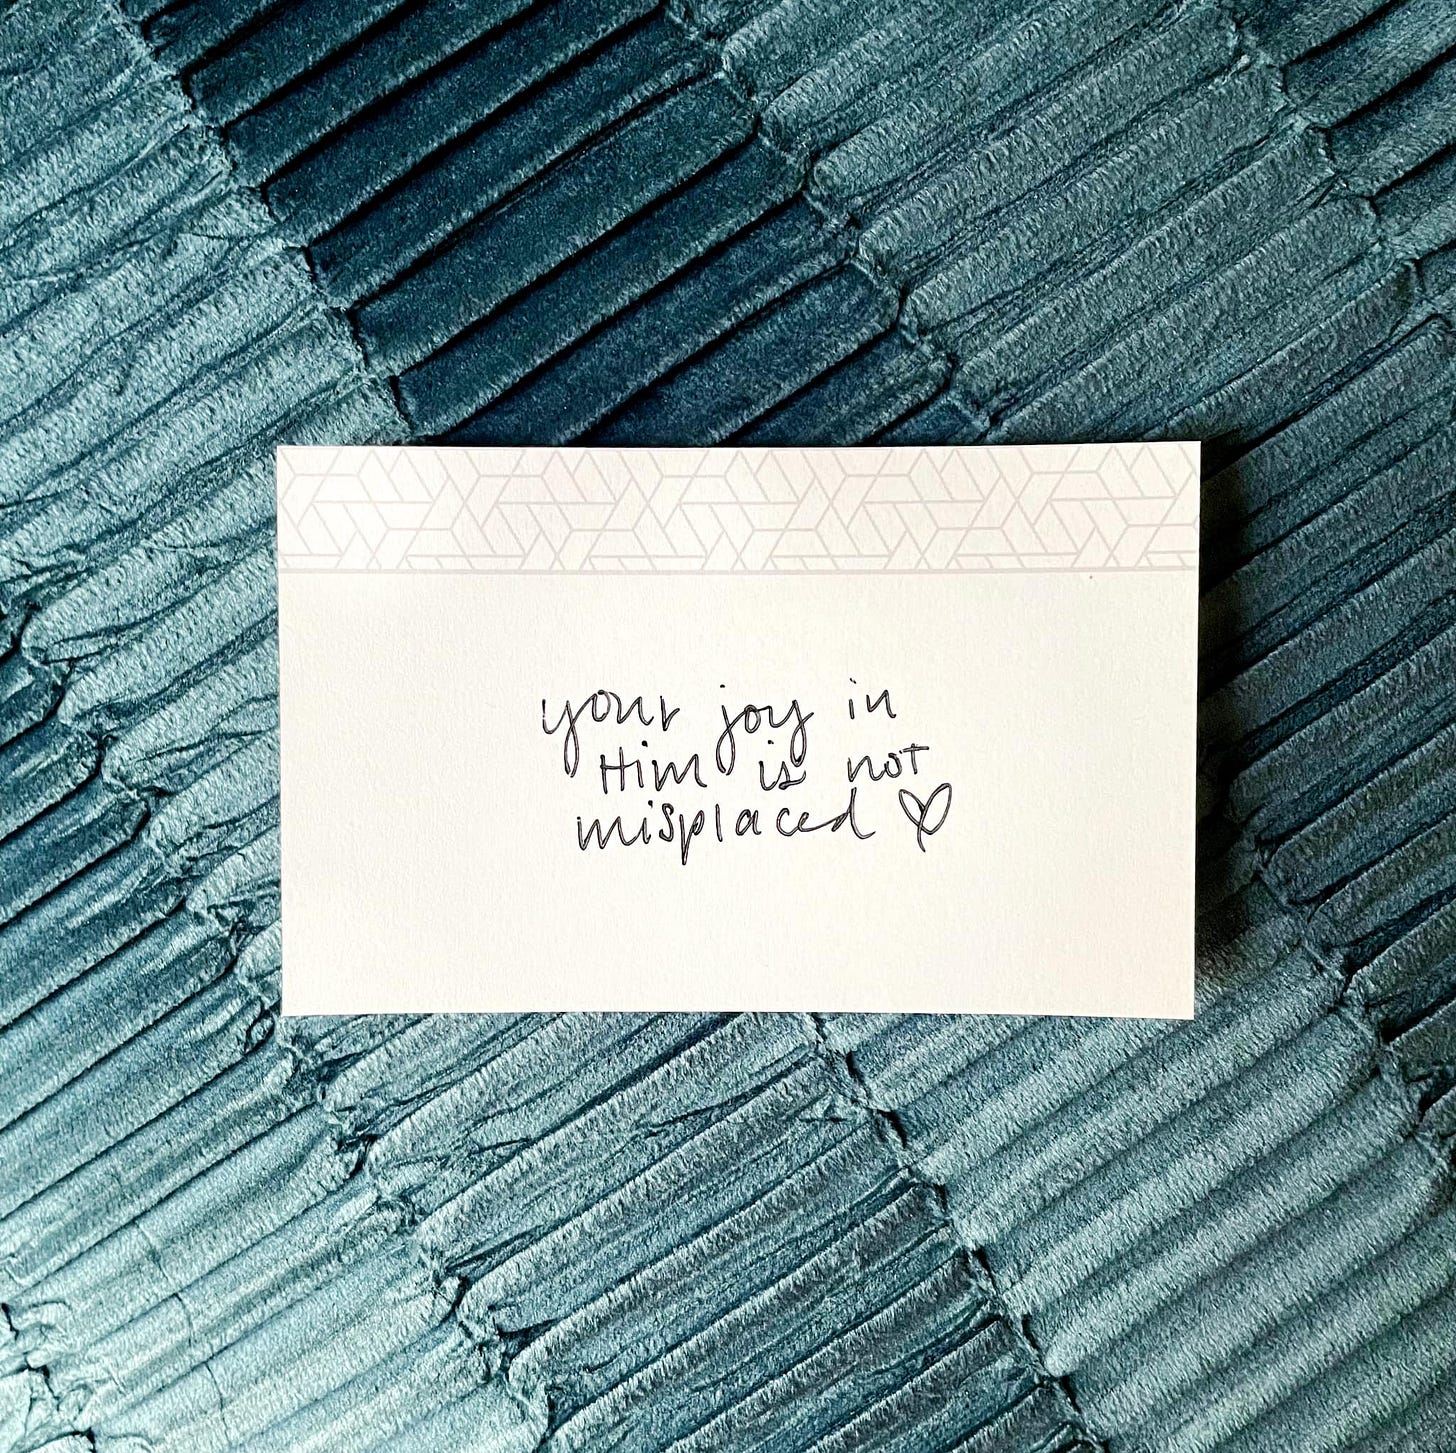 your joy in
Him is not
misplaced ♡